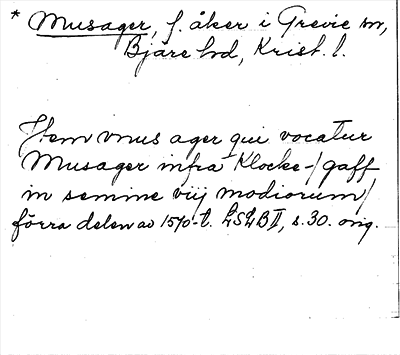 * Musager, f. åker i Grevie sn,
Bjäre hd, Krist. l.
Item vnus ager qui vocatur
Musager infra Klocke-/gaff
in semine viij modiorum/
förra delen av 1570-t. LSLB II, s. 30. orig.